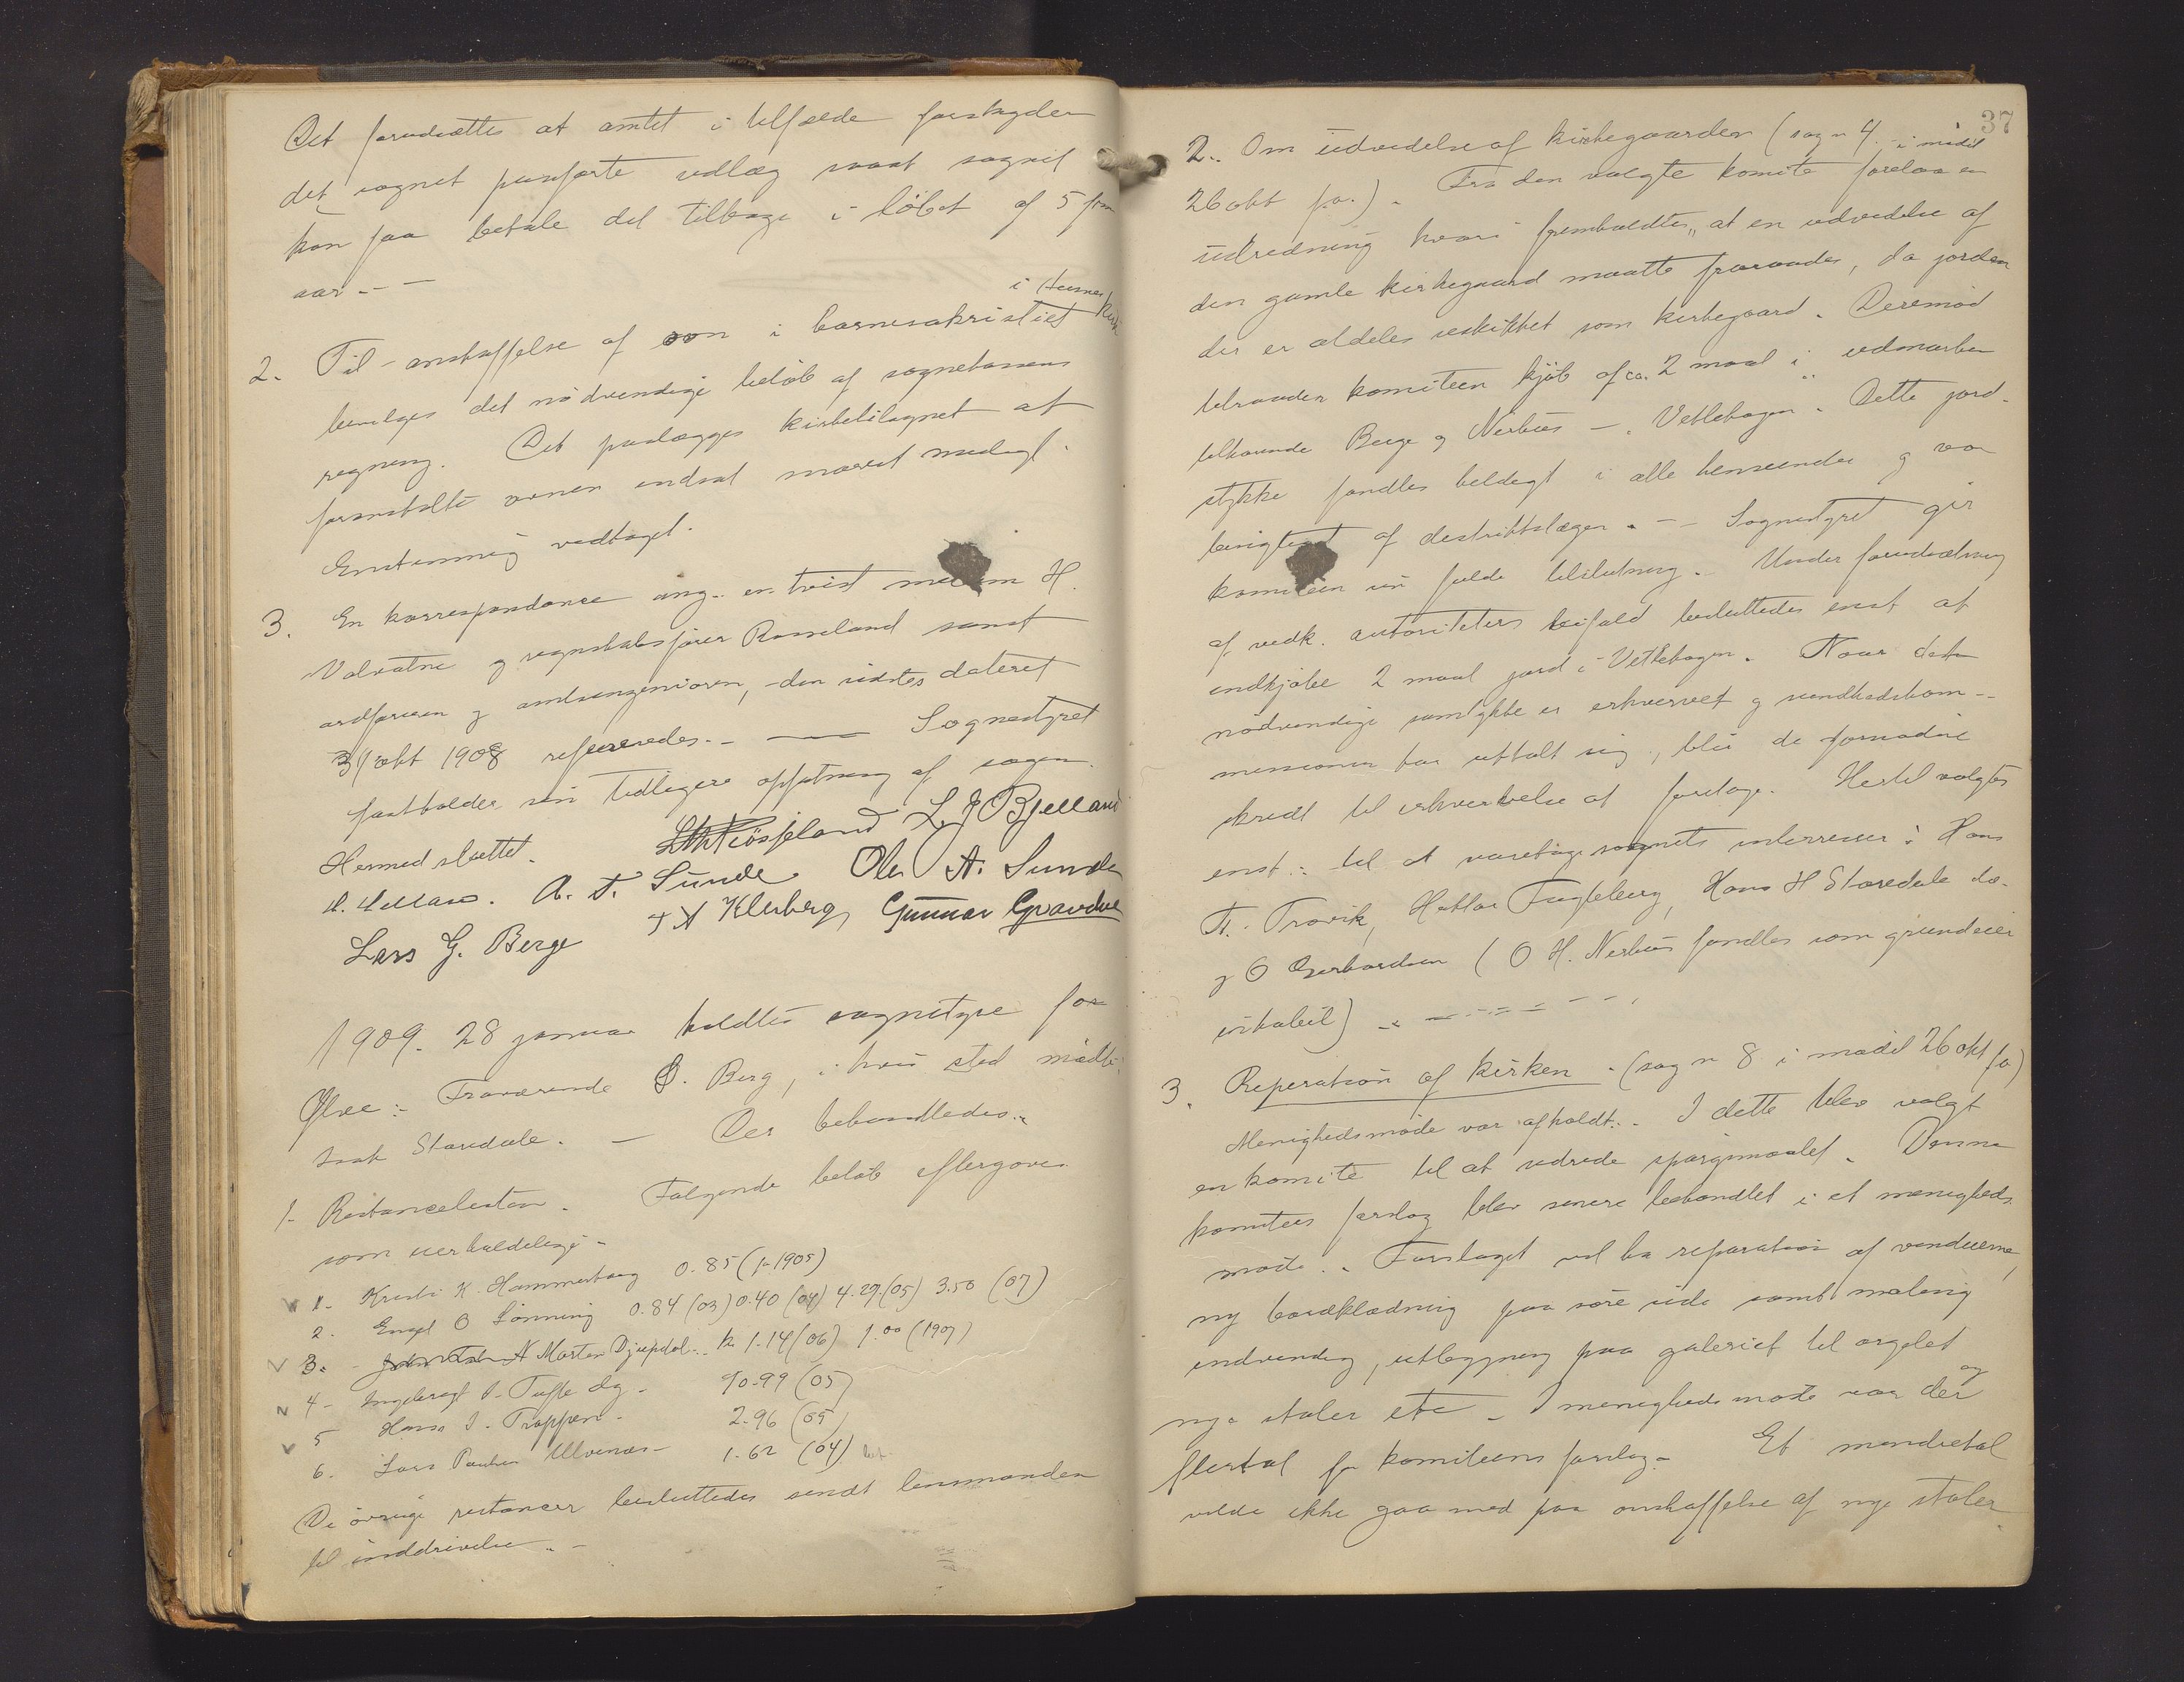 Det forudsættes at amtet i tilfælde forskyder
det sognet paaførte udlæg saaat sognet
kan faa betale det tilbage i løbet af 5 fem
aar. - -
2. Til anskaffelse af ovn i barnesakristiet i Husnes kirke
bevilges det nødvendige beløb af sognekassens
regning. Det paalægges kirketilsynet at
foranstalte ovnen indsat snarest muligt.
Enstemmig vedtaget.
3. En korrespondance ang. en tvist mellem H.
Valvatne og regnskabsfører Rosseland samt
ordføreren og amtsingeniøren, den sidste dateret
31 okt 1908 refereredes. - — Sognestyret
fastholder sin tidligere opfatning af sagen.
Hermed sluttet. L. J. Bjelland
A. T. Sunde Ole A. Sunde
Lars G. Berge Gunnar Gravdal
1909. 28 januar holdtes sognestyre for
Ølve: Fraværende O. Berg, i hvis sted mødte
Storedale. — Der behandledes:
1. Restancelisten. Følgende beløb eftergoves
som uerholdelige.
1- Kristi K. Hammerhaug 0.85 (1905)
2. Engel O Lønning 0.84 (03) 0.40 (04) 4.29 (05) 3.50 (07)
3. Morten Djupdal k 1.14 (06) 1.00 (1907)
4- Ingeborg I. Tufte dg. 10.99 (05)
5 Hans I. Trappen 2.96 (05)
6. Lars Paulsen Ulvenes 1.62 (04)
De øvrige restancer besluttedes sendt lensmanden
til inddrivelse. -
37
2. Om udvidelse af kirkegaarden (sag n 4 i mødet
26 okt f.a.). Fra den valgte komite forelaa en
udredning hvori fremholdtes, at en udvidelse af
den gamle kirkegaard maatte fraraades, da jorden
der er aldeles uskikket som kirkegaard. Derimod
tilraader komiteen kjøb af ca. 2 maal i udmarken
tilhørende Berge og Nerhus -, Vetlehagen. Dette jord-
stykke fandtes beldigt i alle henseender og var
besigtiget af distriktslægen. - - Sognestyret gir
komiteen sin fulde tilslutning. Under forudsætning
af vedk. autoriteters bifald besluttedes enst at
indkjøbe 2 maal jord i Vetlehagen. Naar det
nødvendige samtykke er erhvervet og sundhedskom-
missionen har uttalt sig, blir de fornødne
skridt til erhvervelse at foretage. Hertil valgtes
enst: til at varetage sognets interesser: Hans
T. Travik, Hallor Fugleberg, Hans H Storedale
og O Gerhardsen (O H. Nerhus fandtes som grundeier
inhabil) - - - -
3. Reperation af kirken. (sag n 8 i mødet 26 okt fa)
Menighedsmøde var afholdt. I dette blev valgt
en komite til at udrede spørgsmaalet. Denne
komitees forslag blev senere behandlet i et menigheds
møde. Forslaget vil ha reparation af vinduerne,
ny bordklædning paa søre side samt maling
indvendig, utlægning paa galeriet til orgelet og
nye stoler etc. I menighedsmøde var der
flertal for komiteens forslag. Et mindretal
vilde ikke gaa med paa anskaffelse af nye stoler